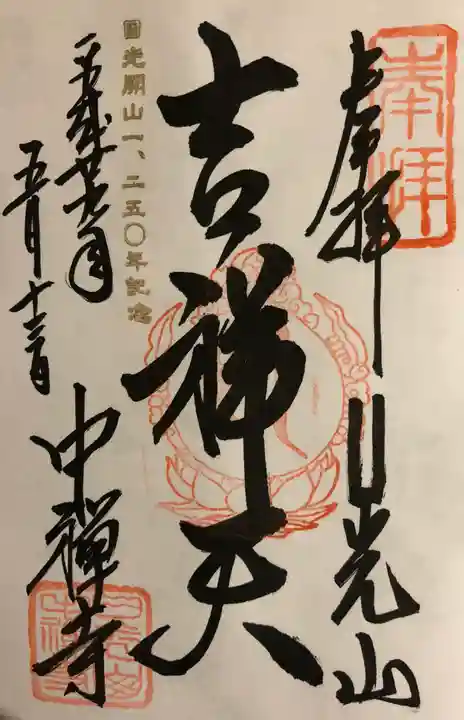 奉拝
上席拝 日光山
吉祥天
日光開山一、二五〇年記念
平成廿七年
五月十三日
中禅寺